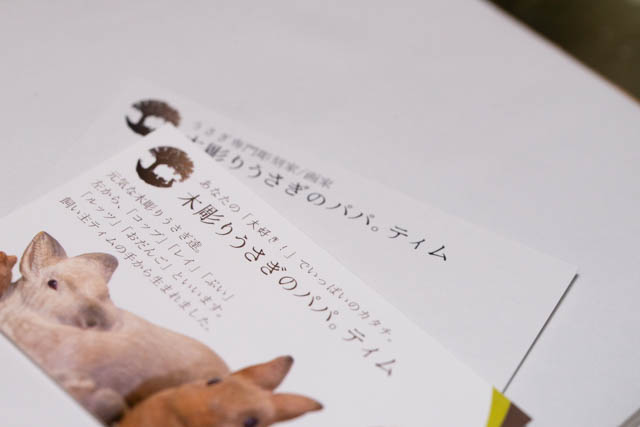 うさぎ専門彫刻家/画家
木彫りうさぎのパパ。ティム
あなたの「大好き!」でいっぱいのカタチ。
木彫りうさぎのパパ。ティム
元気な木彫りうさぎ達。
左から、「コップ」「レイ」「ぷい」
「ルッツ」「おだんご」といいます。
飼い主ティムの手から生まれました。